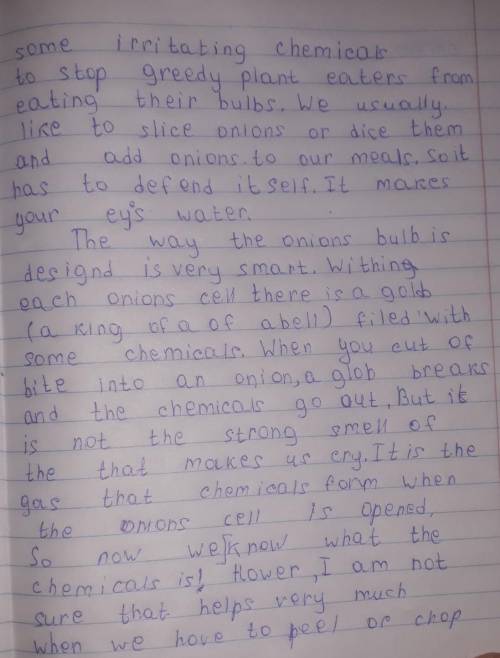 some irritating chemicals
to stop greedy plant eaters from
eating their bulbs. We usually.
like to slice onions or dise them
and add onions. to our meals. So it
has to defend it self. It makes
your ey's water.
The way the onions bulb is
designd is very smart. Withing
each onions cell there is a golb
(a king of a of a bell) filed with
some chemicals. When you cut of
bite into an onion, a glob breaks
and the chemicals go out, But it
is not the strong smell of
the that makes us cry. It is the
gas that chemicals form when
the onions cell Is opened,
So now we know what the
chemicals is! Hower, I am not
sure that helps very much
when we have to peel or chop